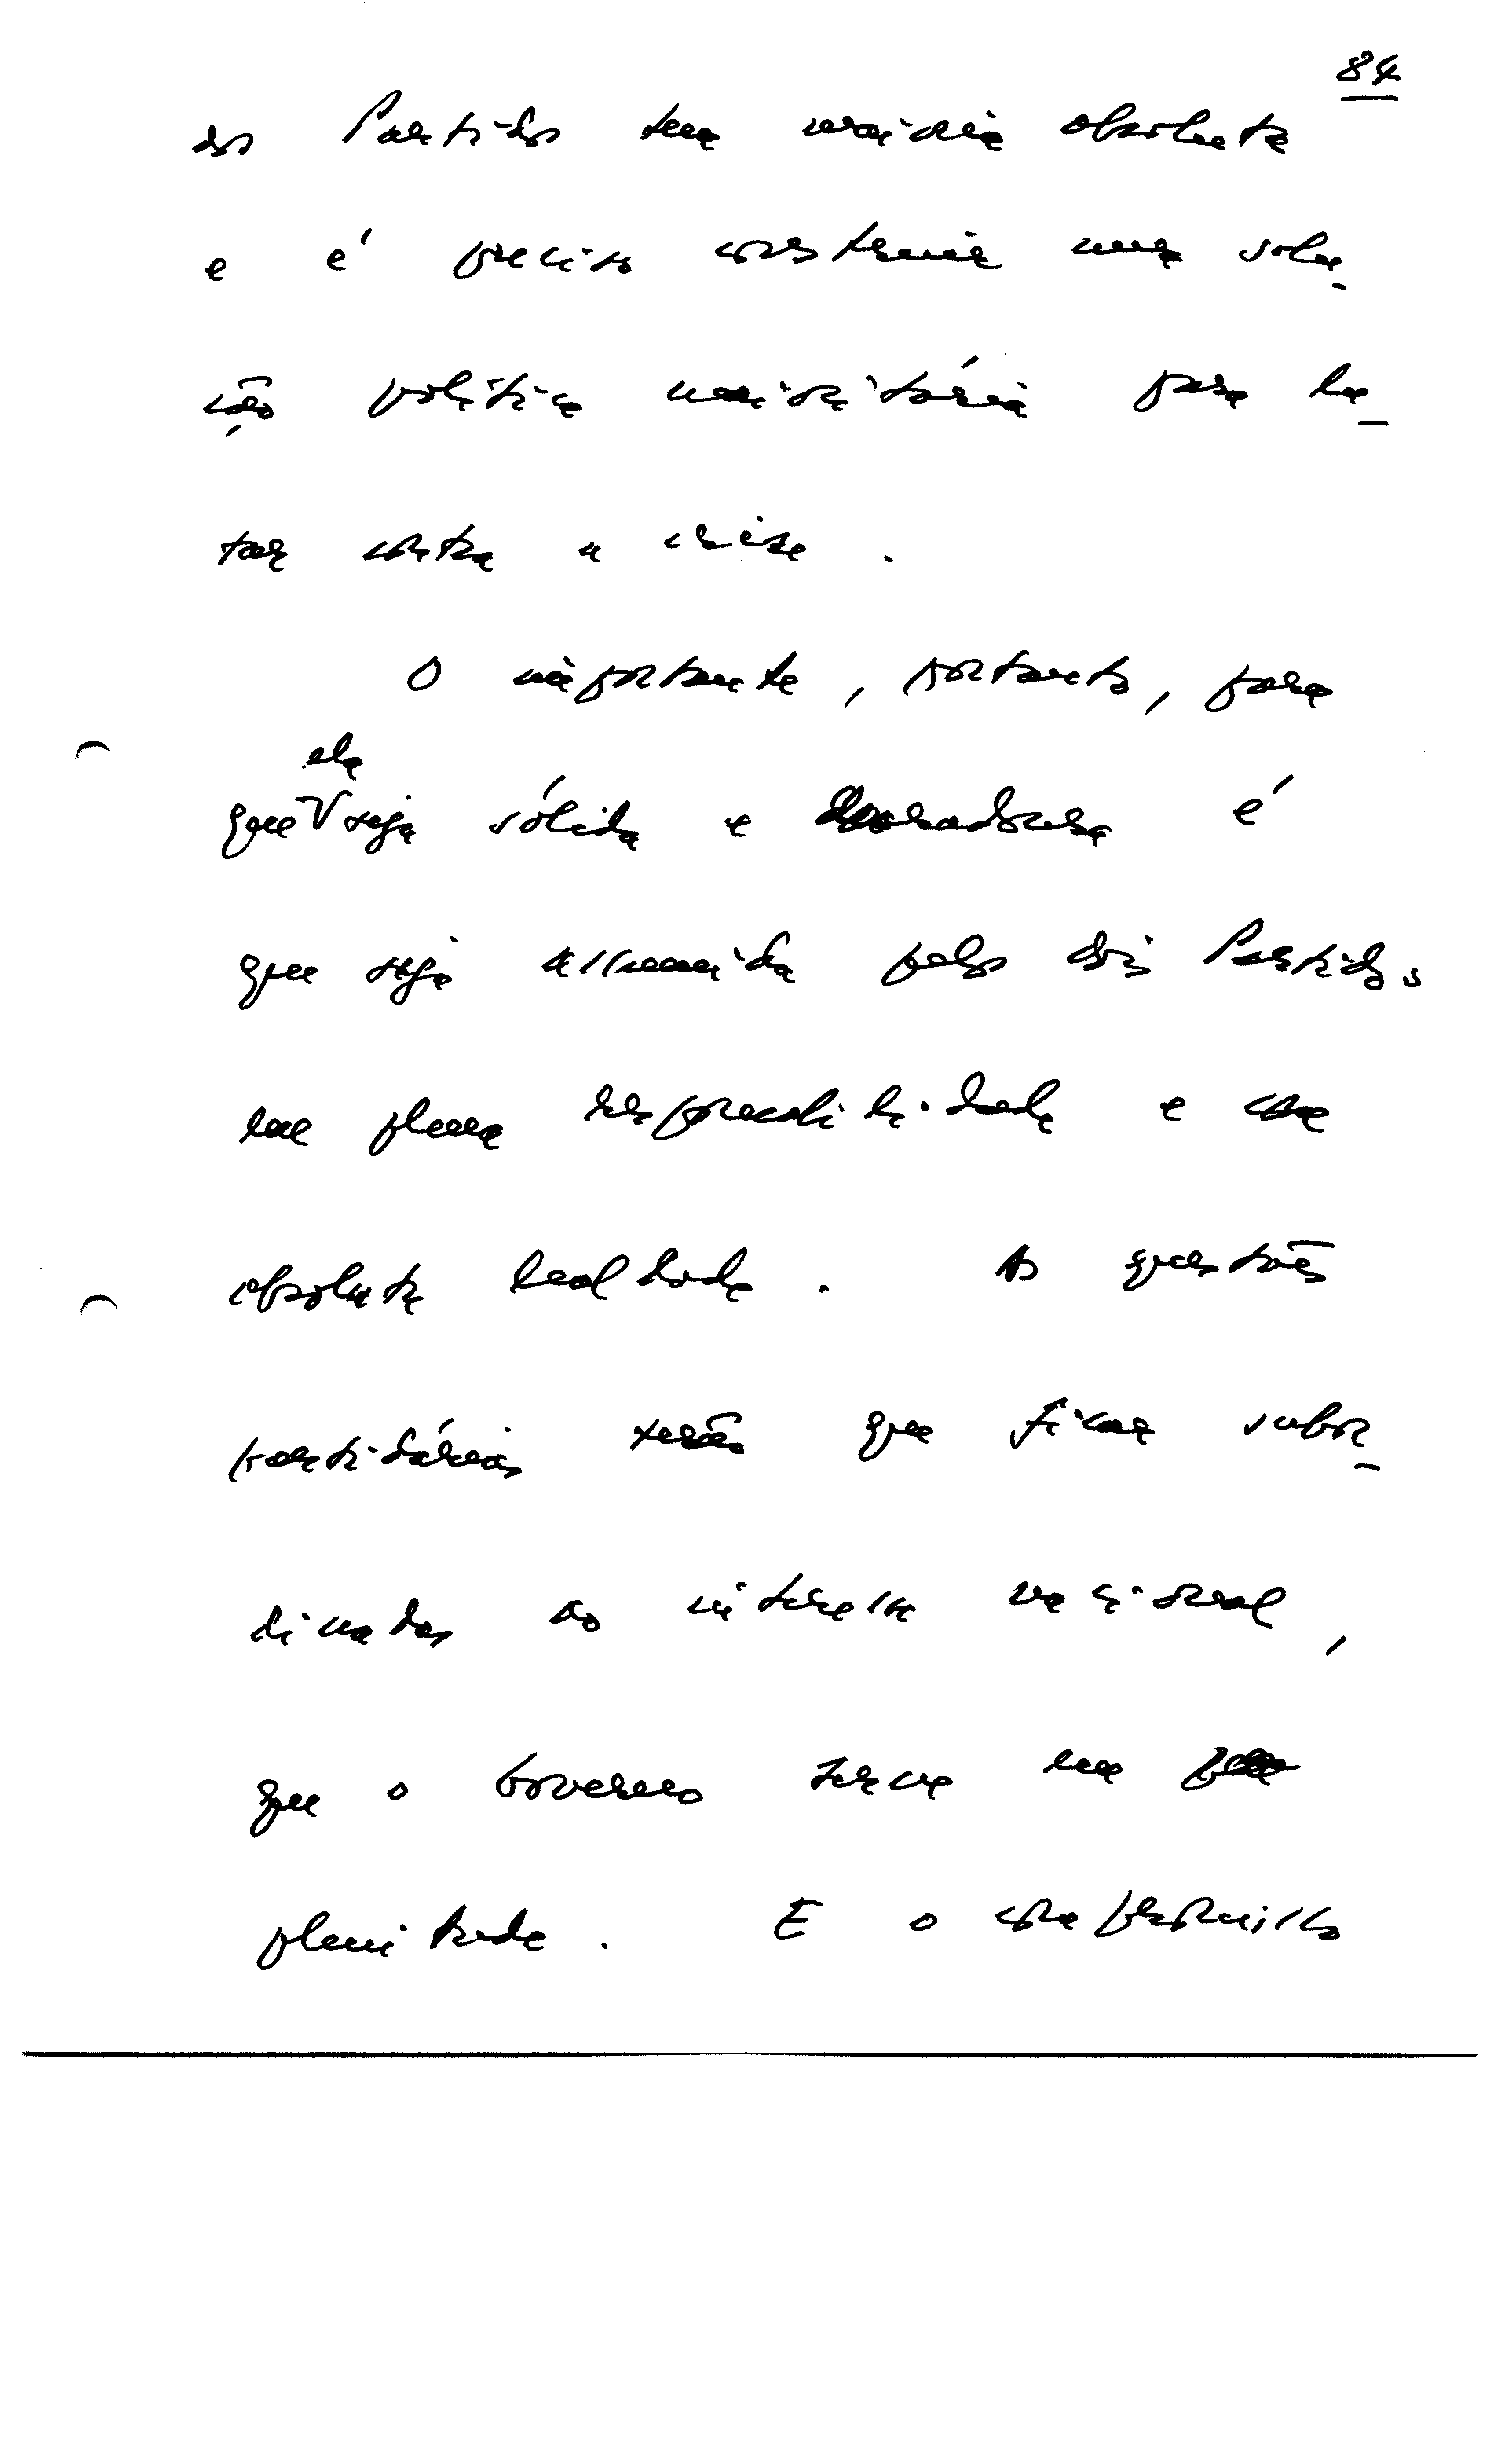 84
dos Partidos tem maioria absoluta
e é preciso construir uma solu-
ção política maioritária para lu-
tar contra a crise.
O importante, portanto, para
ela
que seja sólida e duradoura é
que seja assumida pelos dois Partidos
em plena responsabilidade e com
absoluta lealdade. As questões
partidárias terão que ficar subor-
dinadas ao interesse nacional,
que o Governo serve em
plenitude. E o compromisso